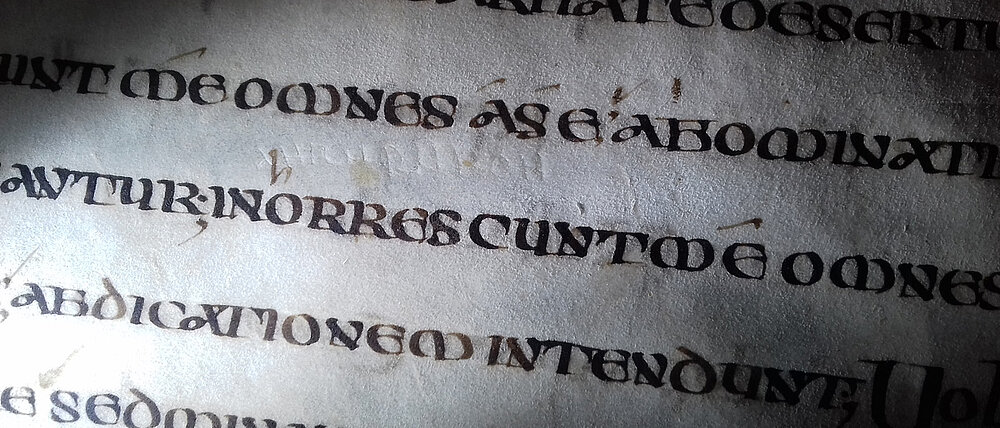 UNT ME OMNES AS E; ABOMINATI
ANTUR; INhORRESCUNT ME OMNES
ABDICATIONEM INTENDUNT; UOL
E SED